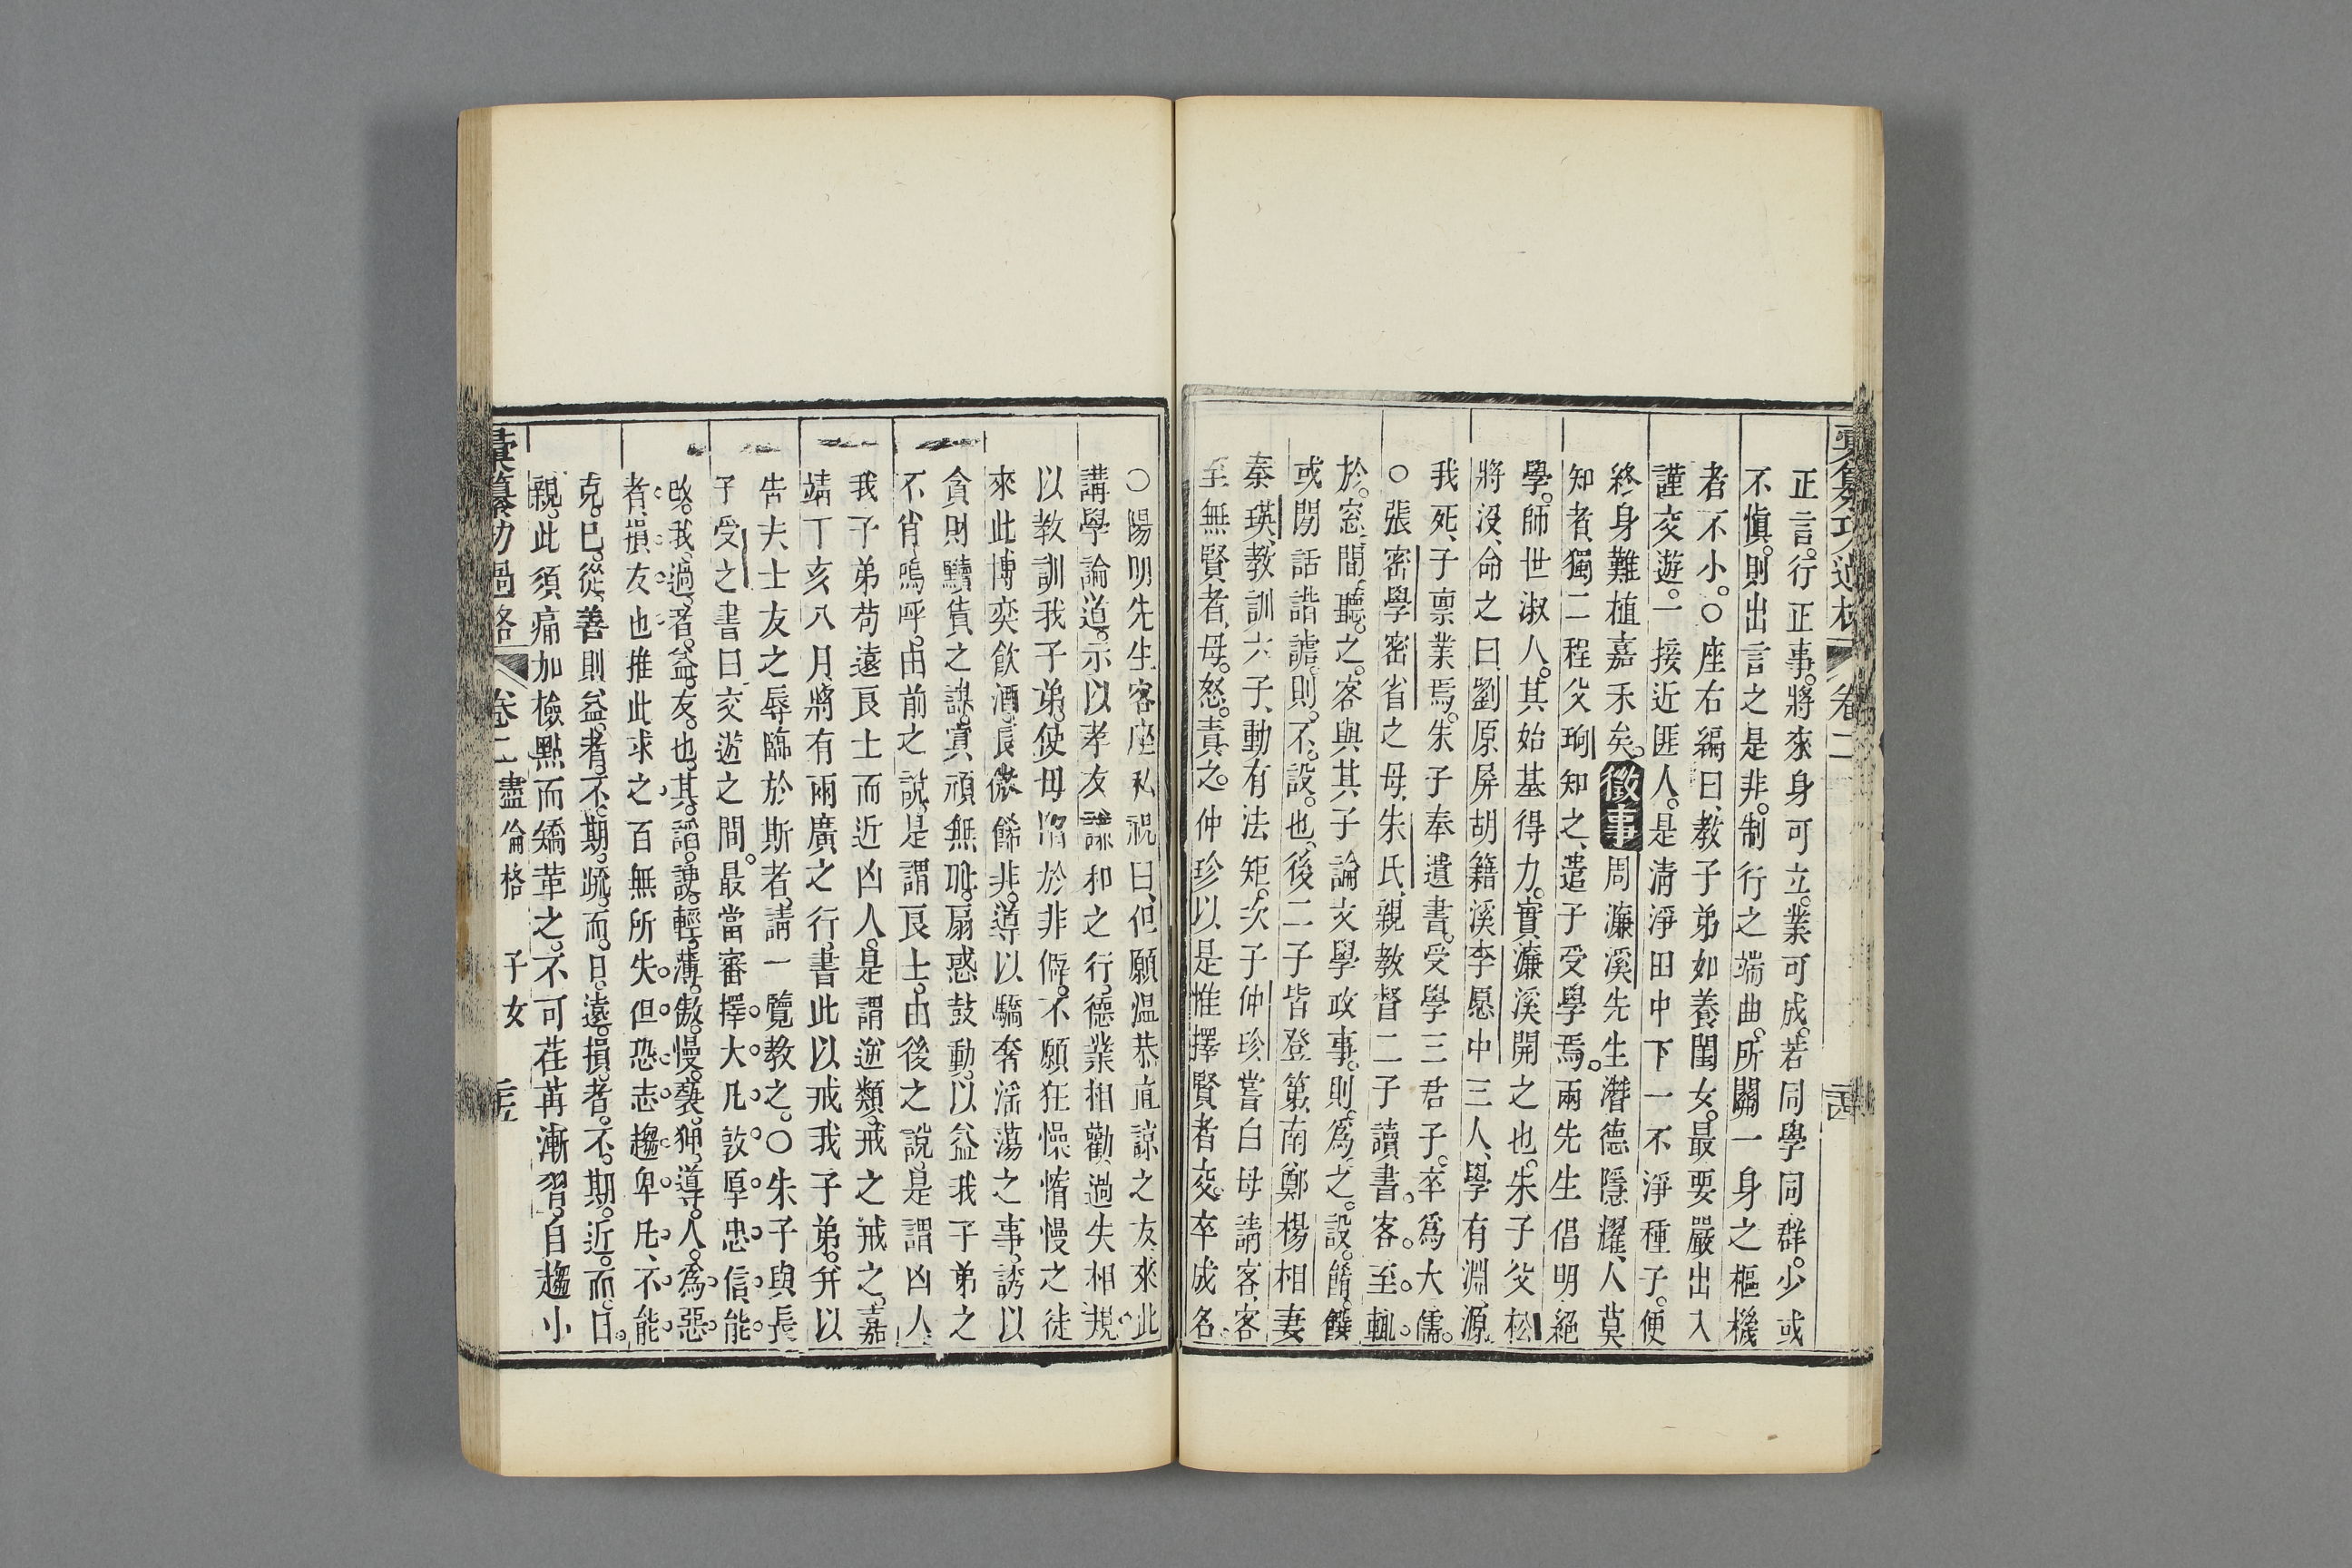 彙纂功過格 卷二
正言。行正事。將來身可立。業可成。若同學同群。少或
不愼。則出言之是非。制行之端曲。所關一身之樞機
者不小。○座右編曰、教子弟如養閨女。最要嚴出入
謹交遊。一接近匪人。是淸淨田中下一不淨種子。便
終身難植嘉禾矣。徵事周濂溪先生潛德隱耀、人莫
知者、獨二程父珦知之、遣子受學焉。兩先生倡明絕
學。師世淑人。其始基得力。實濂溪開之也。朱子父松
將沒、命之曰、劉原屏胡籍溪李愿中三人、學有淵源
我死、子禀業焉。朱子奉遺書。受學三君子。卒爲大儒。
○張密學密省之母、朱氏、親教督二子讀書。客至。輒
於。窓。間。聽。之。客與其子論文學政事。則。爲。之。設。餚。饌
或閒話諧謔。則。不。設。也。後二子皆登第、南鄭楊相妻
秦瑛、教訓六子、動有法矩。次子仲珍嘗白母請客、客
至無賢者、母。怒。責。之。仲珍以是惟擇賢者交。卒成名。
○陽明先生客座私祝曰、但願温恭直諒之友、來此
講學論道。示以孝友謙和之行。德業相勸、過失相規、
以教訓我子弟。使毋陷於非僻。不願狂懆惰慢之徒
來此博奕飮酒。長傲餙非。導以驕奢淫蕩之事。誘以
貪財黷貨之謀。冥頑無恥。扇惑鼓動。以益我子弟之
不肖、嗚呼。由前之說、是謂良士。由後之說、是謂凶人
我子弟苟遠良士而近凶人。是謂逆類。戒之戒之。嘉
靖丁亥八月將有兩廣之行。書此以戒我子弟。并以
告夫士友之辱臨於斯者、請一覽教之。○朱子與長
子受之書曰、交遊之間。最當審擇。大凡敦厚忠信。能
攻。我。過。者。益。友。也。其。謟。諛。輕。薄。傲。慢。褻。狎。導。人。爲。惡
者、損友也推此求之、百無所失。但恐志趨卑凡、不能
克。己。從。善則。益。者。不。期。疏。而。日。遠。損。者。不。期。近。而。日。
親。此須痛加檢點而矯革之。不可荏苒漸習。自趨小
彙纂功過格 卷二 盡倫格 子女